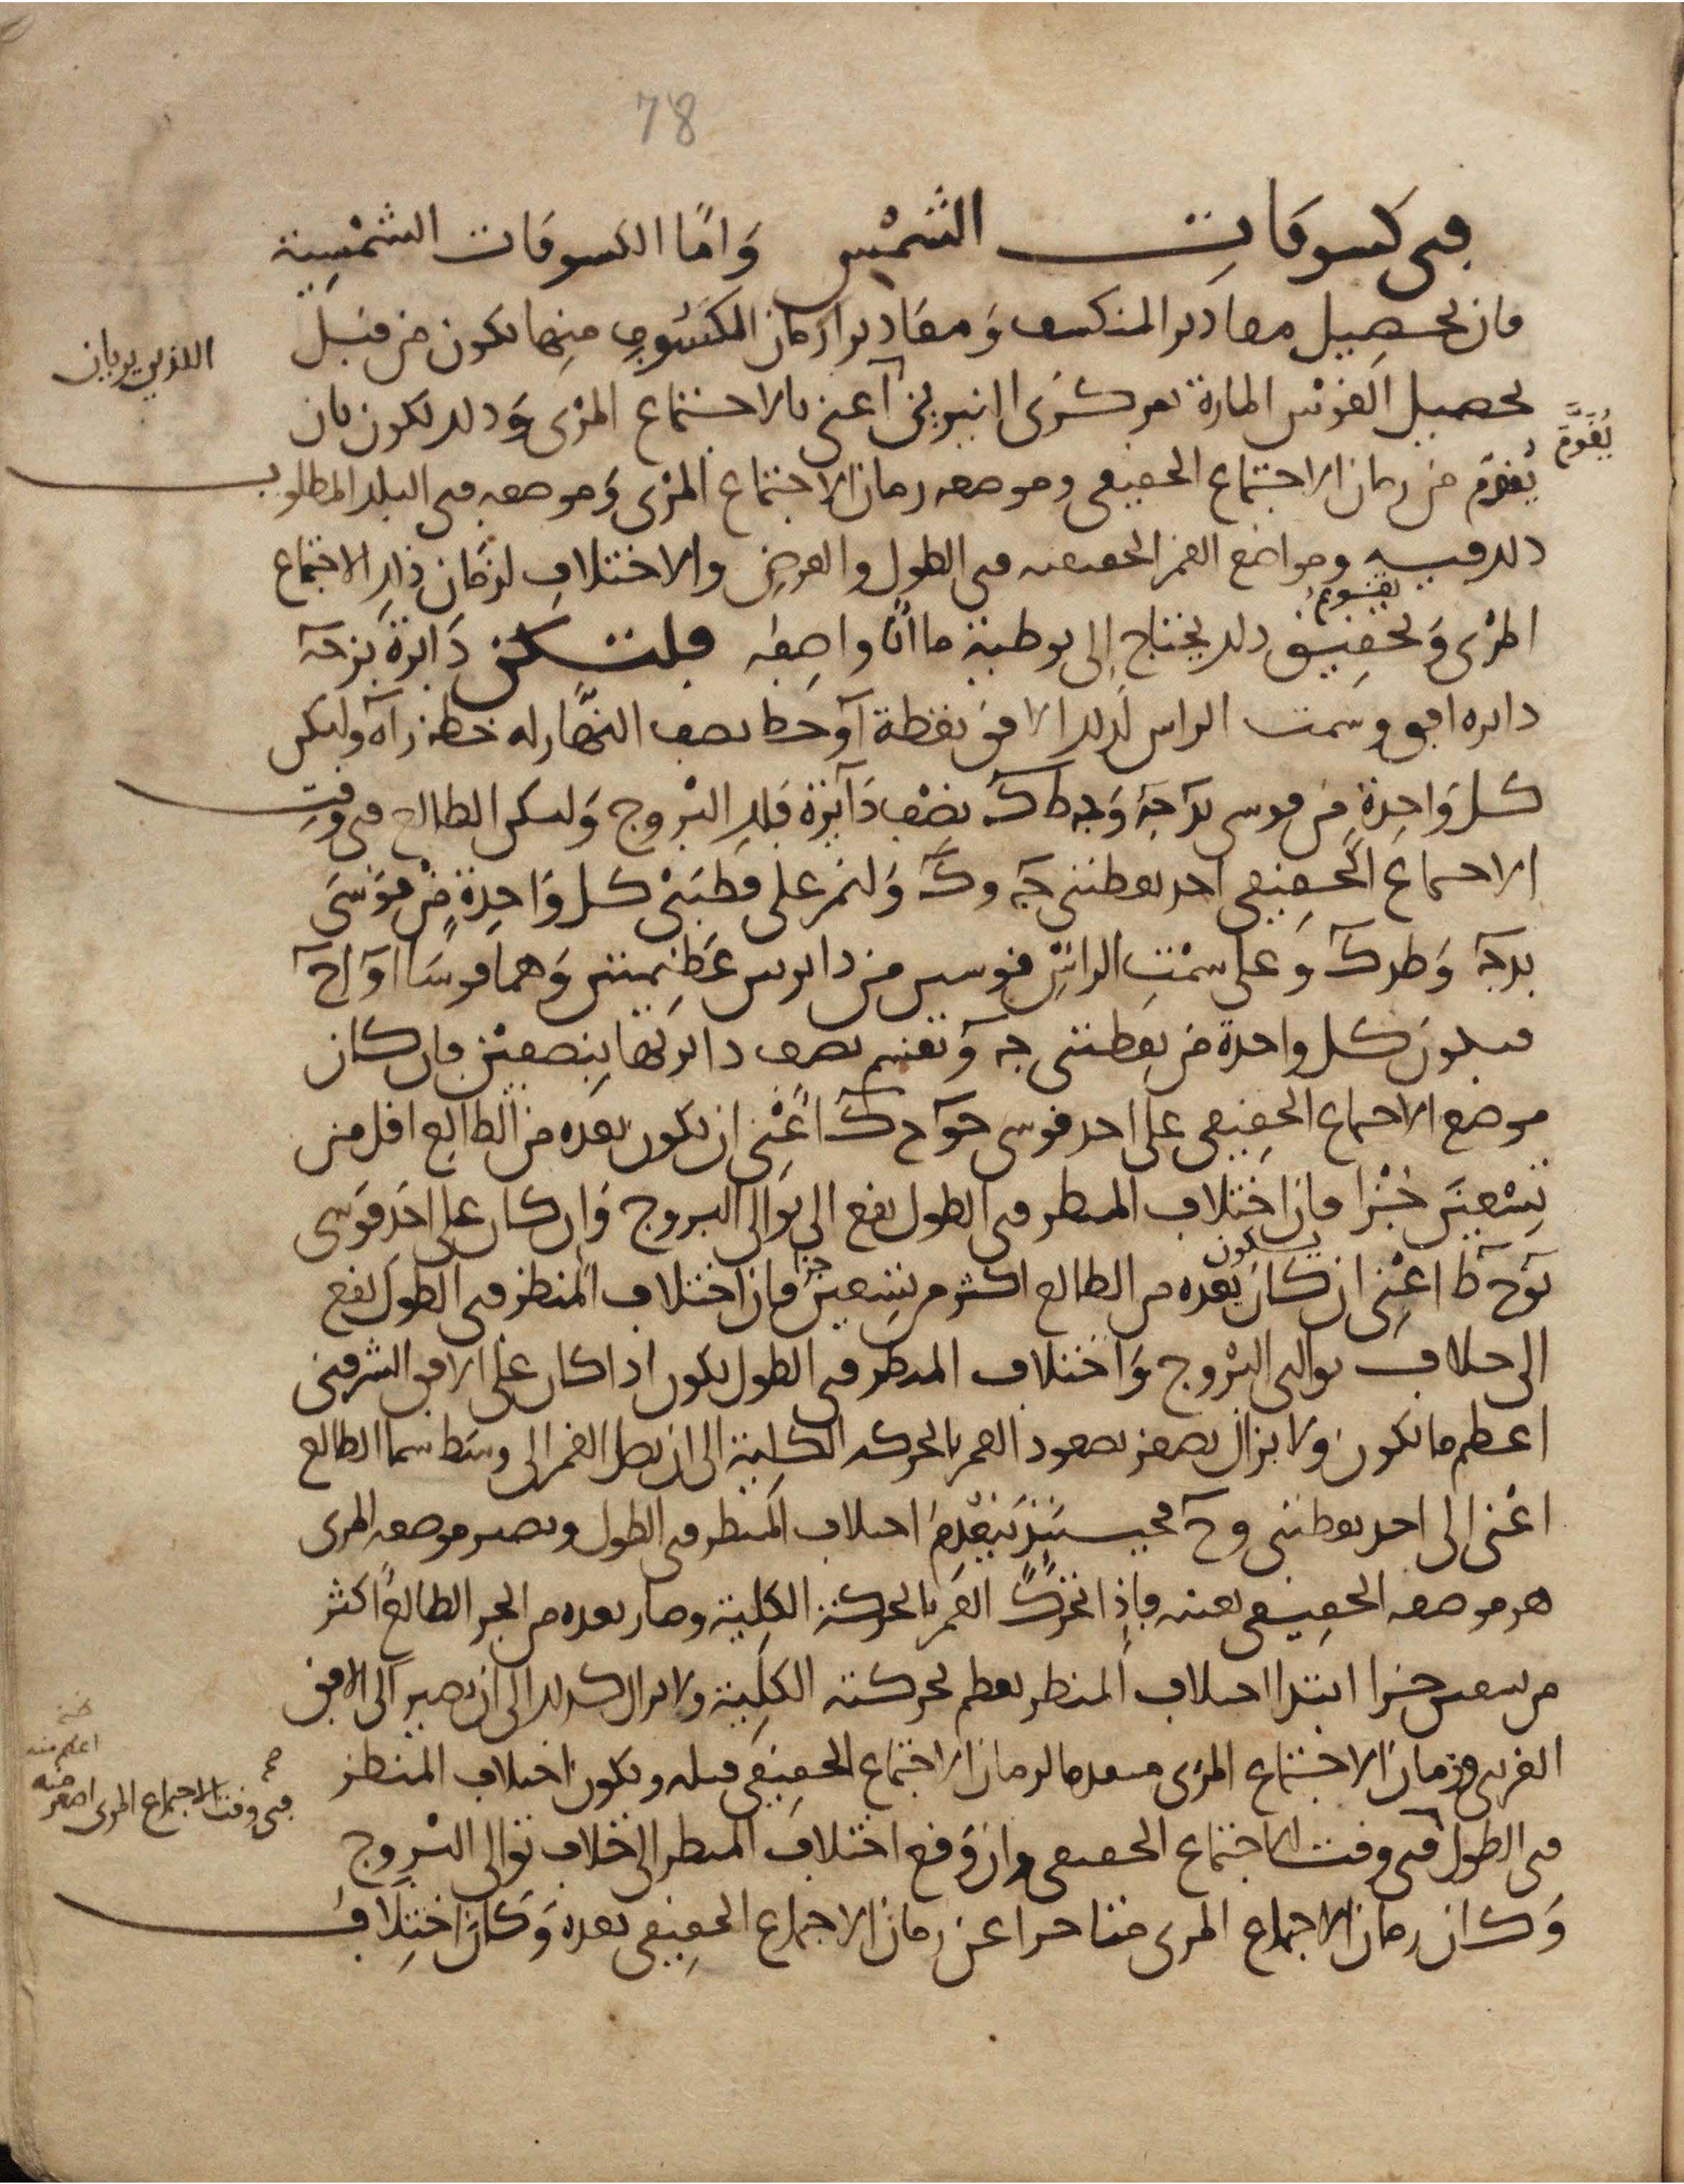 78
في كسوفات الشمس وَامّا الكسوفات الشمسية
فان تحصيل مقادير المنكسف وَمقادير ازمان الكسُوف منها تكون من قبل
اللذين يريان
تحصيل القوس المارة بمركزى النيرين اعني بالاجتماع المرْى وَذلك يكون بان
يُقَوَّمَ
يُقوَّم من زمان الاجتماع الحقيقي وموضعه زمان الاجتماع المرْى وَموضعه في البلد المطلوب
ذلك فيه ومواضع القمر الحقيقية في الطول والعرض والاختلاف لزمان ذلك الاجتماع
تقويم
المرْى وَتحقيق ذلك يحتاج إلى توطية ما انا واصفه فلتكن دَايرة بزحه
دايره افق وسمت الراس لذلك الافق نقطة آ وخط نصف النهار له خط زآه وليكن
كل وَاحِدةٍ من قوسى بدَجه وَجه ط ك نصف دَآيرة فلك البُروج وَليكن الطالع في وقت
الاجتماع الحقيقي احد نقطتي جه وكَ وَلنمر على قطبَيْ كل وَاحِدةٍ منْ قوْسَى
بدجه وَطدك وعلى سمْتِ الراسْ قوسين من دايرتين عَظيمتين وَهما قوسَا اوَ اح
فيكون كل واحدة من نقطتي جه وَ تقسم نصف دايرتها بنصفيْن فان كان
موضع الاجتماع الحقيقي على احد قوسى جوَ ح ك اعْنِي ان يكون بعده من الطالع اقل من
تِسْعينَ جُزْءا فان اختلاف المنظر في الطول يقع الى توَالى البروج وَان كان على احَد قوَسى
يكون
بوَ ح ط اعْنِي ان كان بعده من الطالع اكثر من تِسعين جزا فان اختلاف المنظر في الطول يقع
الى خلاف توالي البُروج وَاختلاف المنظر في الطول يكون اذا كان على الافق الشرقي
اعظم ما يكون ولا يزال يصغر بصعود القمر بالحركه الكلية الى ان يصل القمر الى وسَط سما الطالع
اعْني الى احد نقطتي و ح فحينئذ يَنْعَدِم اختلاف المنظر في الطول ويصير موضعه المرى
هو موضعه الحقيقي بعينه فاذا تحرّك القمر بالحركة الكلية وصار بعده من الجز الطالع اكثر
من تسعين جزا ابتدا اختلاف المنظر يعظم بحركته الكلية ولا يزال كذلك الى ان يصير الى الافق
الغربي وزمان الاجتماع المرى متقدما لزمان الاجتماع الحقيقي قبله ويكون اختلاف المنظر
اعظم منه
في وقت الاجتماع المرى اصغر منه
في الطول في وقت الاجتماع الحقيقي وان وَقع اختلاف المنظر الى خلاف توالى البُروج
وَكان زمان الاجتماع المرى متاخرا عن زمان الاجتماع الحقيقي بعده وَكان اختِلاف